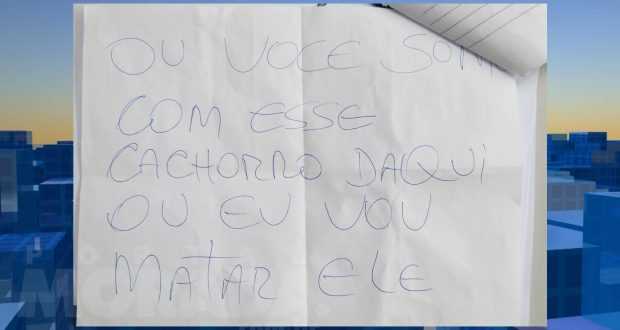 OU VOCE SOM
COM ESSE
CACHORRO DAQUI
OU EU VOU
MATAR ELE